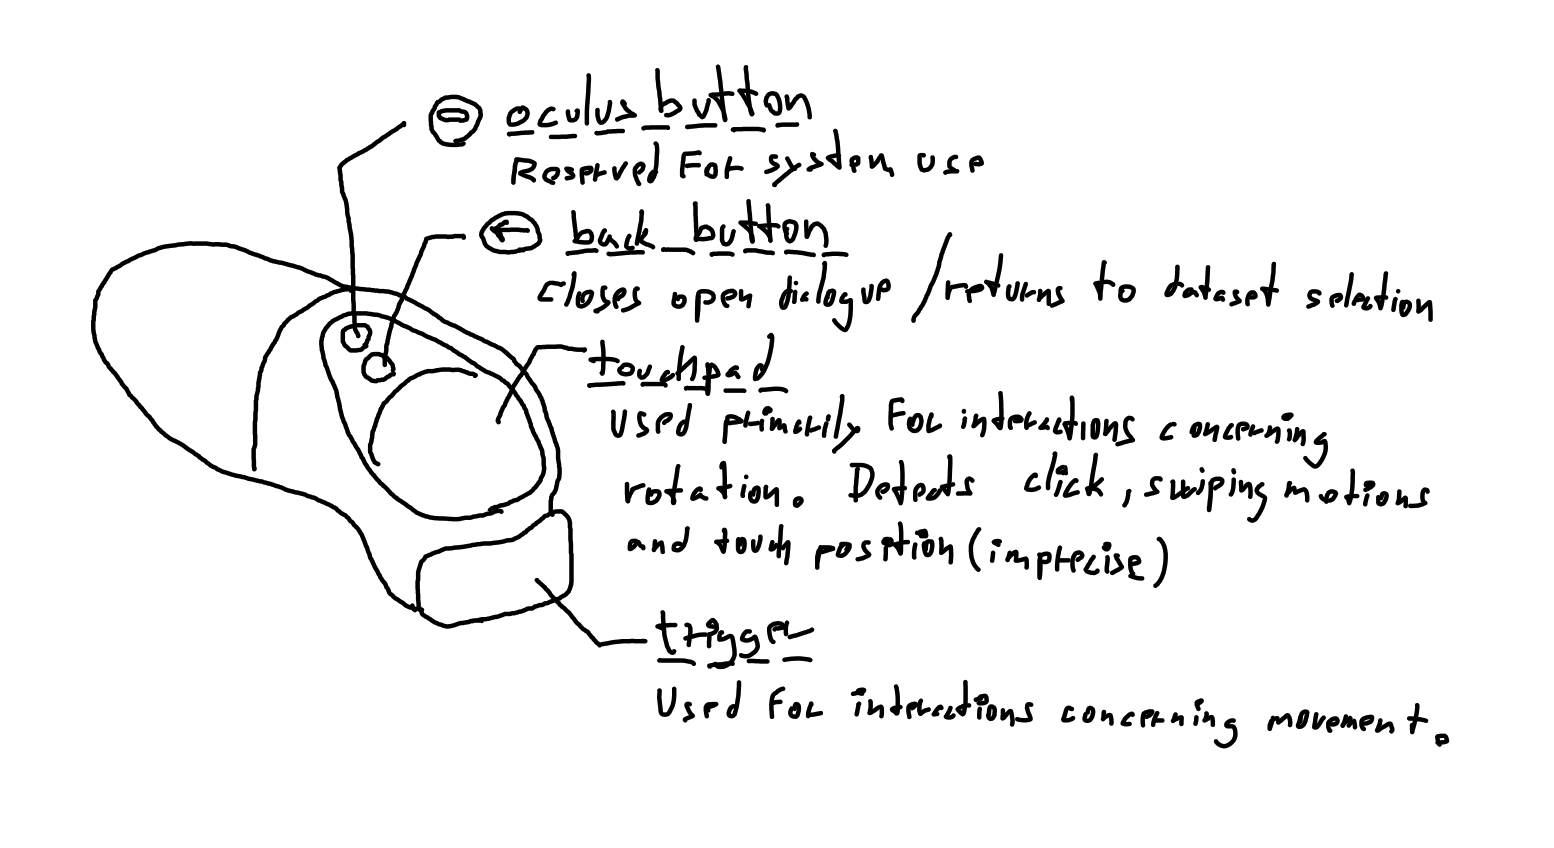 oculus button
Reserved For system use
back button
closes open dialogue / returns to dataset selection
touchpad
Used primarily For interactions concerning
rotation. Detects click, swiping motions
and touch position (imprecise)
trigger
Used For interactions concerning movement.